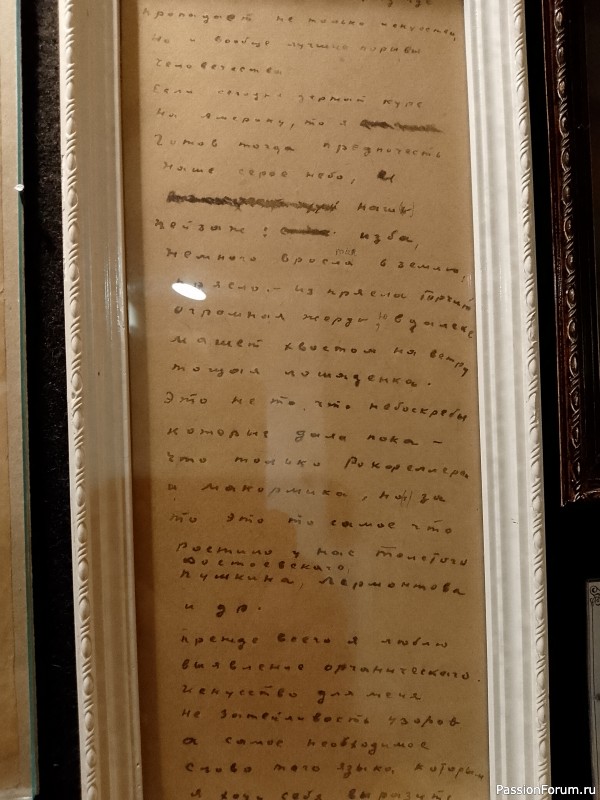 пропадает не только искусство,
но и вообще лучшие порывы
человечества
Если сегодня держат курс
на Америку, то я
готов тогда предпочесть
наше серое небо, и
наш()
пейзаж: изба,
немного вросла в землю,
прясло, из прясла торчит
огромная жердь, и вдалеке
машет хвостом на ветру
тощая лошаденка.
Это не то, что небоскребы
которые дала пока –
что только Рокфеллера
и Макормика, но за
то это то самое что
ростило у нас Толстого
Достоевского,
Пушкина, Лермонтова
и др.
прежде всего я люблю
выявление органического.
Искусство для меня
не затейливость узоров
а самое необходимое
слово того языка которым
я хочу себя выразить
PassionForum.ru